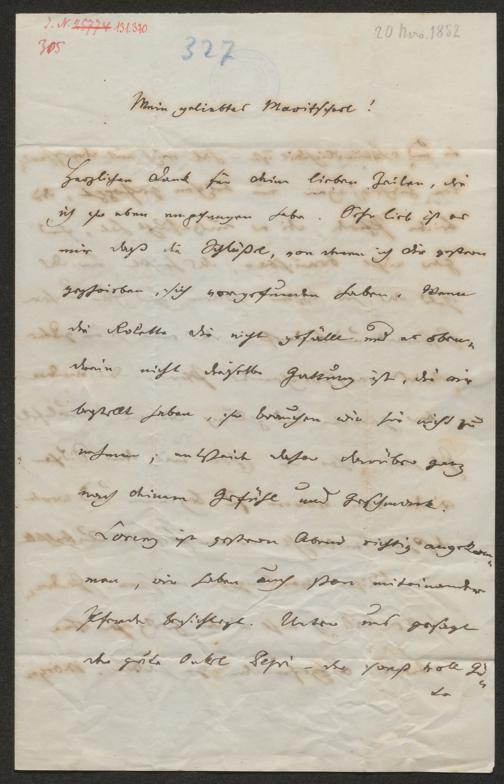 I. N. 25774 131.370
305
327
20 Nov. 1852
Mein geliebtes Maritscherl!
Herzlichen Dank für deine lieben Zeilen, die
ich so eben empfangen habe. Sehr lieb ist es
mir daß die Schlüßel, von denen ich dir gestern
geschrieben, sich vorgefunden haben. Wenn
die Rolette dir nicht gefällt und es oben-
drein nicht dieselbe Gattung ist, die wir
bestellt haben, so brauchen wir sie nicht zu
nehmen; entscheide daher darüber ganz
nach deinem Gefühl und Geschmack.
Lorenz ist gestern Abend richtig angekom-
men, wir haben auch schon miteinander
Pferde besichtigt. Unter uns gesagt
der gute Onkel Pepi – der sonst voll Gü-
te